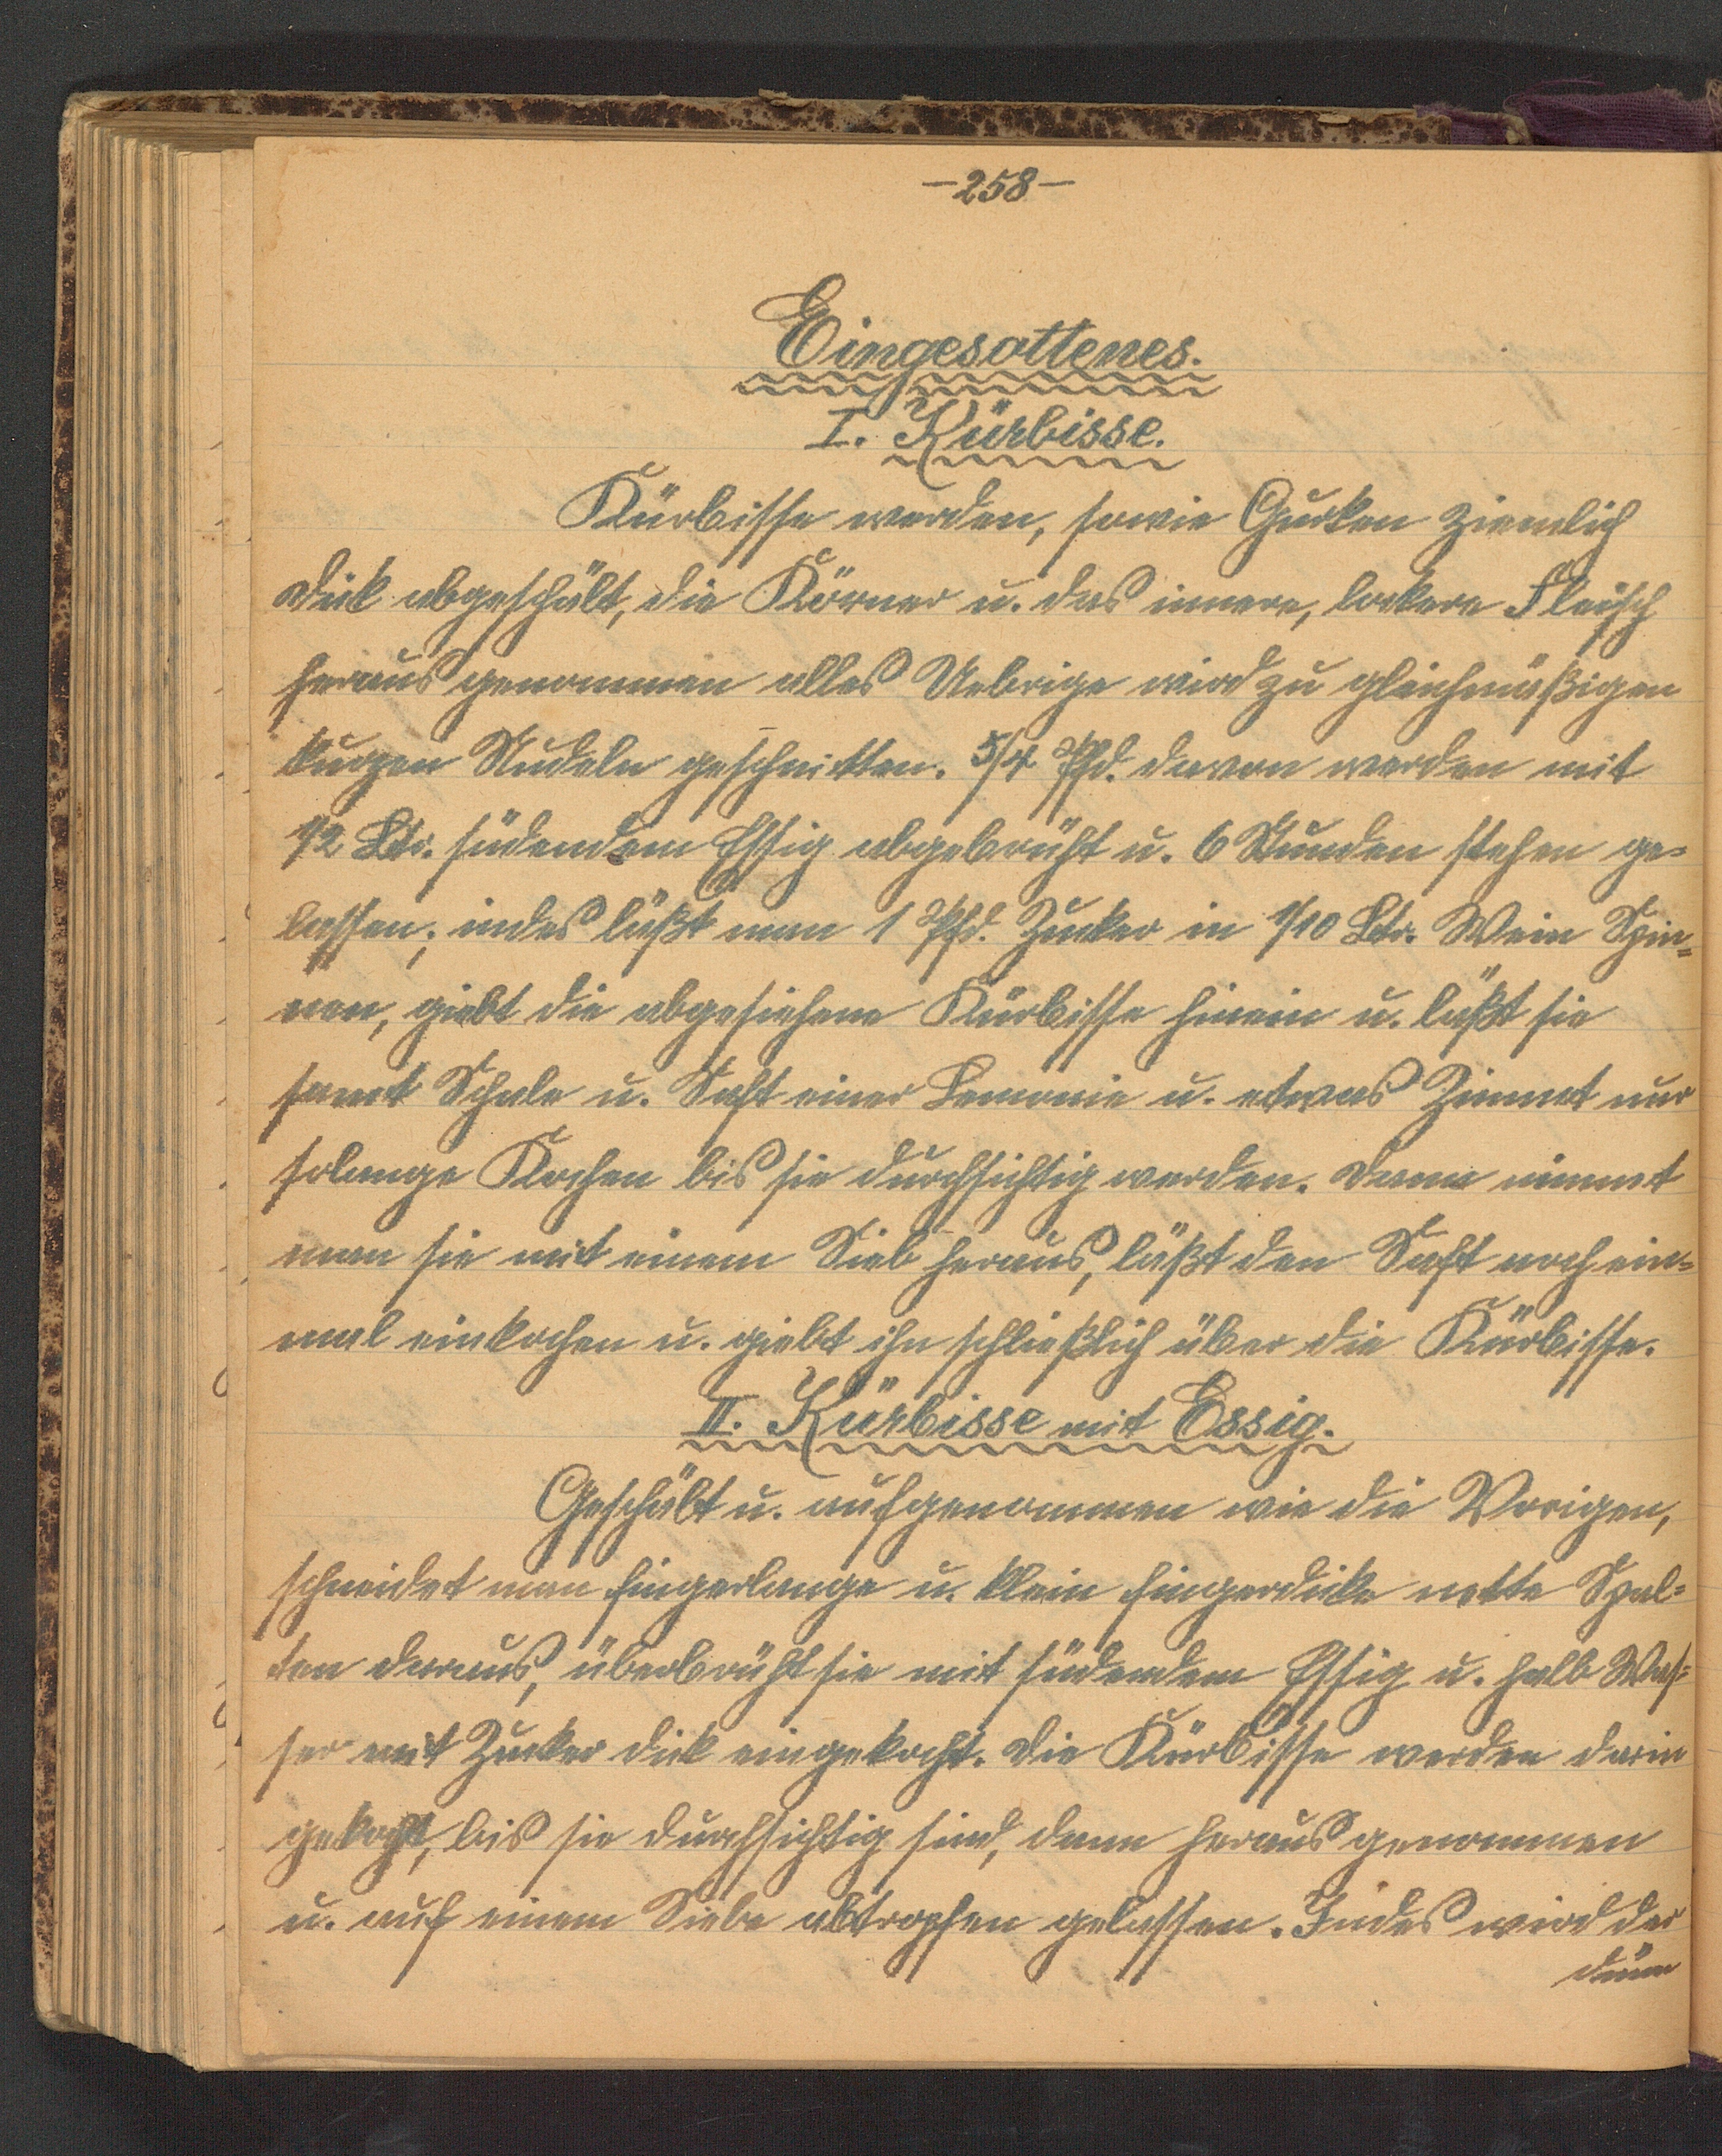 -258-
Eingesottenes.
I. Kürbisse.
Kürbisse werden, sowie Gurken ziemlich
dick abgeschält, die Körner u. das innere, lockere Fleisch
herausgenommen alles Uebrige wird zu gleichmäßigen
kurzen Nudeln geschnitten. 5/4 Pfd. davon werden mit
1/2 Ltr. südendem Essig abgebrüht u. 6 Stunden stehen ge=
lassen; indes läßt man 1 Pfd. Zucker in 1/10 Ltr. Wein Spin=
nen, giebt die abgesiehene Kürbisse hinein u. läßt sie
samt Schale u. Saft einer Lemonie u. etwas Zimmt nur
solange Kochen bis sie durchsichtig werden. Dann nimmt
man sie mit einem Sieb heraus, läßt den Saft noch ein=
mal einkochen u. giebt ihn schließlich über die Kürbisse.
II. Kürbisse mit Essig.
Geschält u. aufgenommen wie die Vorigen,
schneidet man fingerlange u. klein fingerdicke nette Spal=
ten daraus, überbrüht sie mit südendem Essig u. halb Was=
ser mit Zucker dick eingekocht. Die Kürbisse werden darin
gekocht, bis sie durchsichtig sind, dann herausgenommen
u. auf einem Siebe abtropfen gelassen. Indes wird der
dünn